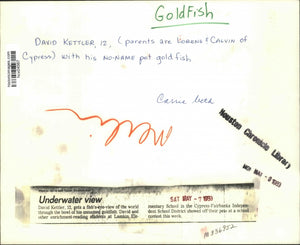 GoldFish
DAVID KETTLER, 12, (parents are LORENE & CALVIN of
Cypress) with his NO-NAME pet goldfish,
Houston Chronicle Library
MAY - 8 1991
SAT MAY - 7 1991
Underwater view
David Kettler, 12, gets a fish's-eye view of the world
through the bowl of his unnamed goldfish. David and
other enrichment-reading students at Lamkin Ele-
mentary School in the Cypress-Fairbanks Indepen-
dent School District showed off their pets at a school
contest this week.